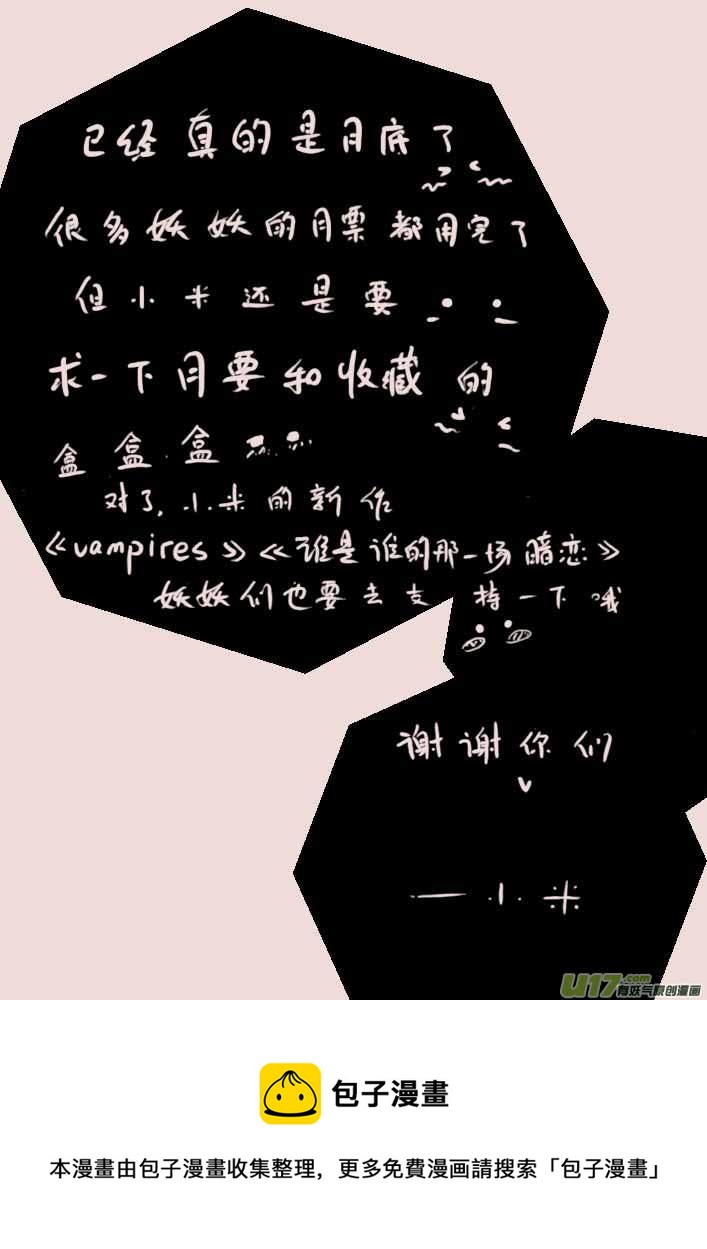 已经真的是月底了
很多妖妖的月票都用完了
但小米还是要
求一下月要和收藏的
盒盒盒
对了,小米的新作
《vampires》《谁是谁的那一场暗恋》
妖妖们也要去支持一下哦
谢谢你们
——小米
U17.com
有妖气原创漫画
包子漫畫
本漫畫由包子漫畫收集整理,更多免費漫画請搜索「包子漫畫」